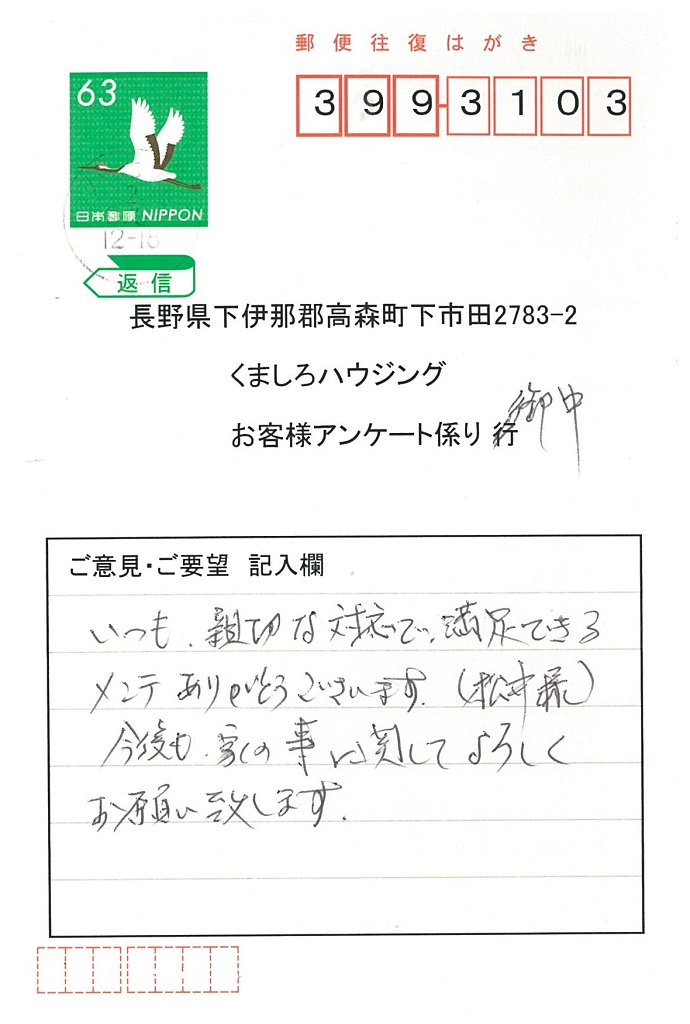 郵便往復はがき
63
399-3103
日本郵便 NIPPON
2
12-18
返信
長野県下伊那郡高森町下市田2783-2
くましろハウジング
お客様アンケート係り 行 御中
ご意見・ご要望 記入欄
いつも、親切な対応で、満足できる
メンテありがとうございます。(松中様)
今後も、家の事に関してよろしく
お願い致します。